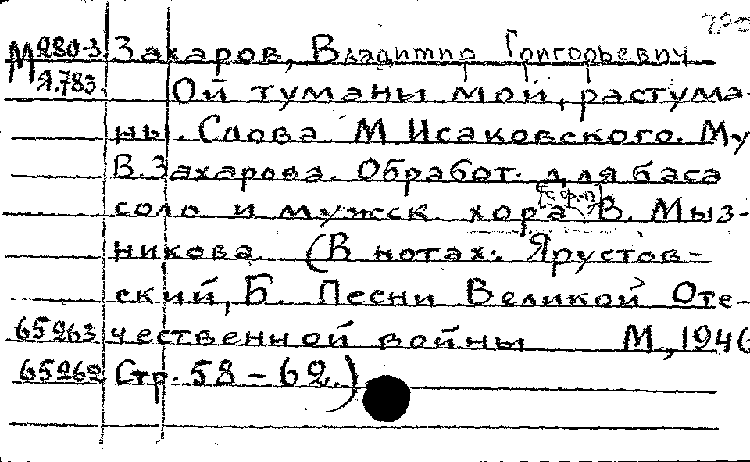 М 280-3 Захаров, Владимир Григорьевич
Я.783. Ой туманы мои, растума-
ны. Слова М. Исаковского. Му
В. Захарова. Обработ. для баса
соло и мужск. хора [с ф-п] В. Мыз-
никова. (В нотах: Ярустов-
ский, Б. Песни Великой Оте-
65263 чественной войны М., 1946
65262 Стр. 58-62.)